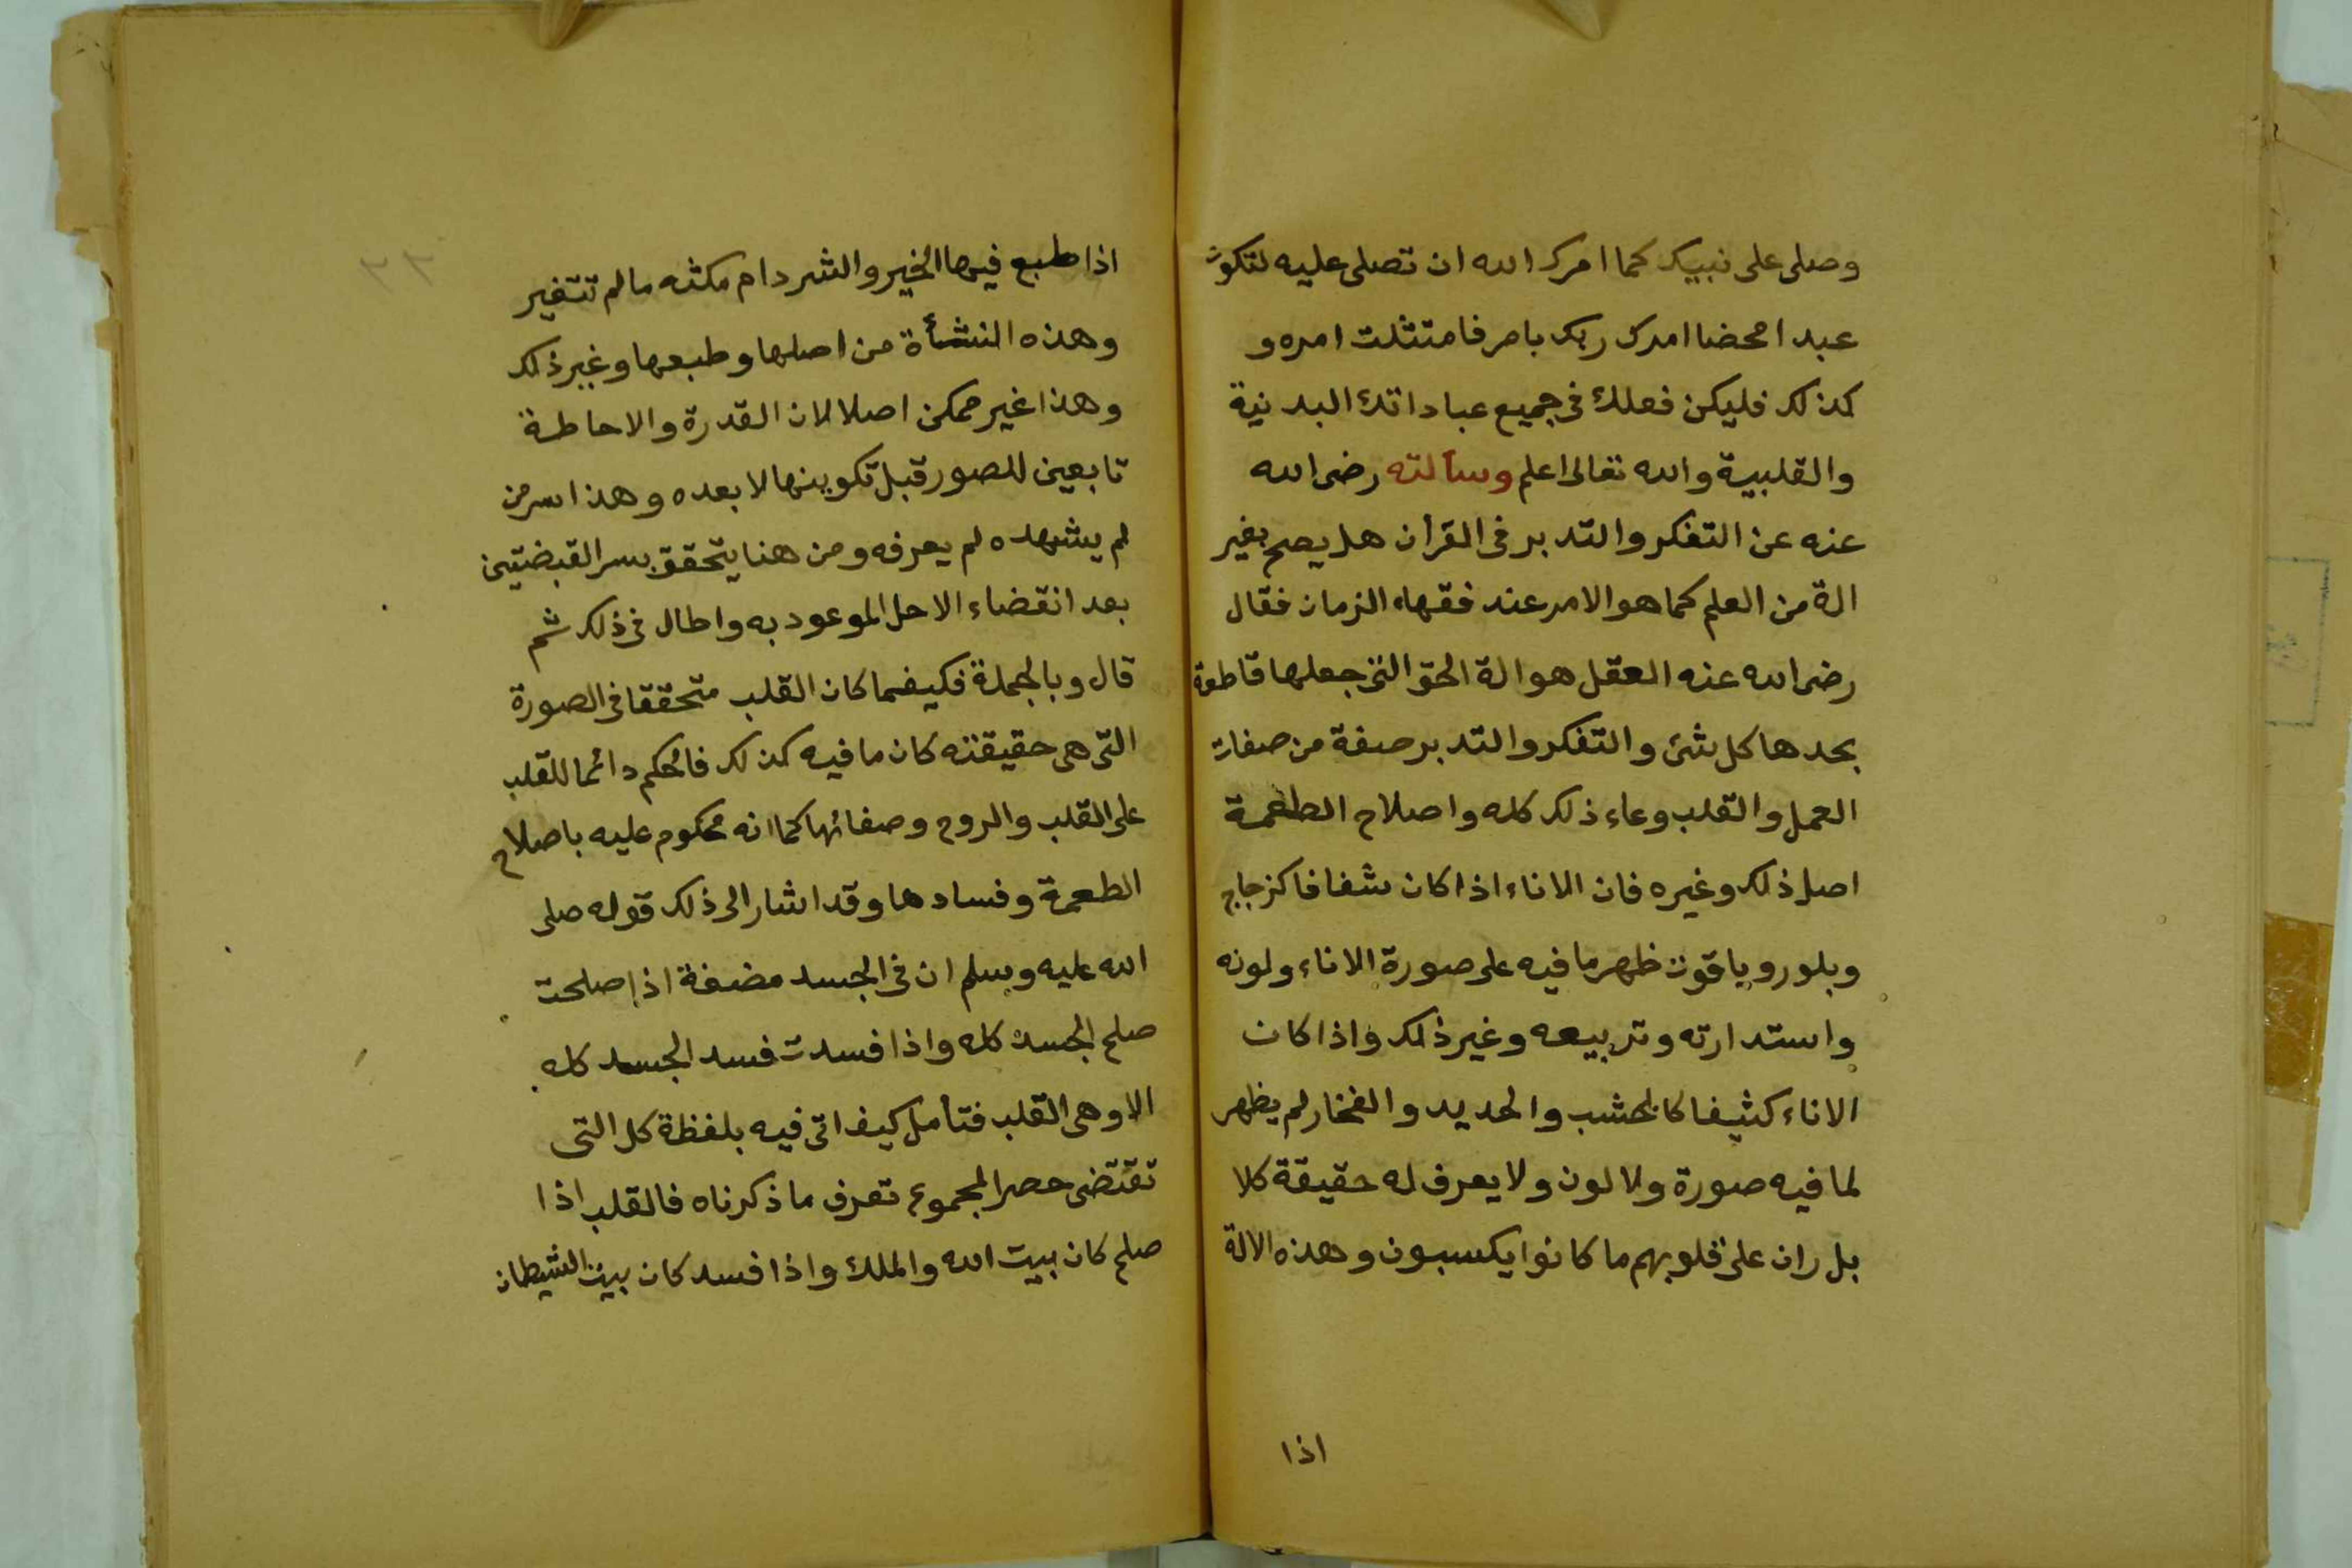 وصلى على نبيك كما امرك الله ان تصلى عليه لتكون
عبدا محضا امرك ربك بامر فامتثلت امره و
كذلك فليكن فعلك فى جميع عباداتك البدنية
والقلبية والله تعالى اعلم وسألته رضى الله
عنه عن التفكر والتدبر فى القرأن هل يصح بغير
الة من العلم كما هو الامر عند فقهاء الزمان فقال
رضى الله عنه العقل هو الة الحق التى جعلها قاطعة
بحدها كل شئ والتفكر والتدبر صفة من صفات
العمل والقلب وعاء ذلك كله واصلاح الطعمة
اصل ذلك وغيره فان الاناء اذا كان شفافا كزجاج
وبلور وياقوت ظهر ما فيه على صورة الاناء ولونه
واستدارته وتربيعه وغير ذلك واذا كان
الاناء كثيفا كالخشب والحديد والفخار لم يظهر
لما فيه صورة ولا لون ولا يعرف له حقيقة كلا
بل ران على قلوبهم ما كانوا يكسبون وهذه الالة
اذا
٢٣
اذا طبع فيها الخير والشر دام مكثه ما لم تتغير
وهذه النشأة من اصلها وطبعها وغير ذلك
وهذا غير ممكن اصلا لان القدرة والاحاطة
تابعين للصور قبل تكوينها لا بعده وهذا سر من
لم يشهده لم يعرفه ومن هنا يتحقق بسر القبضتين
بعد انقضاء الاجل الموعود به واطال فى ذلك ثم
قال وبالجملة فكيفما كان القلب متحققا فى الصورة
التى هى حقيقته كان ما فيه كذلك فالحكم دائما للقلب
على القلب والروح وصفائها كما انه محكوم عليه باصلاح
الطعمة وفسادها وقد اشار الى ذلك قوله صلى
الله عليه وسلم ان فى الجسد مضغة اذا صلحت
صلح الجسد كله واذا فسدت فسد الجسد كله
الا وهى القلب فتأمل كيف اتى فيه بلفظة كل التى
تقتضى حصر المجموع تعرف ما ذكرناه فالقلب اذا
صلح كان بيت الله والملك واذا فسد كان بيت الشيطان